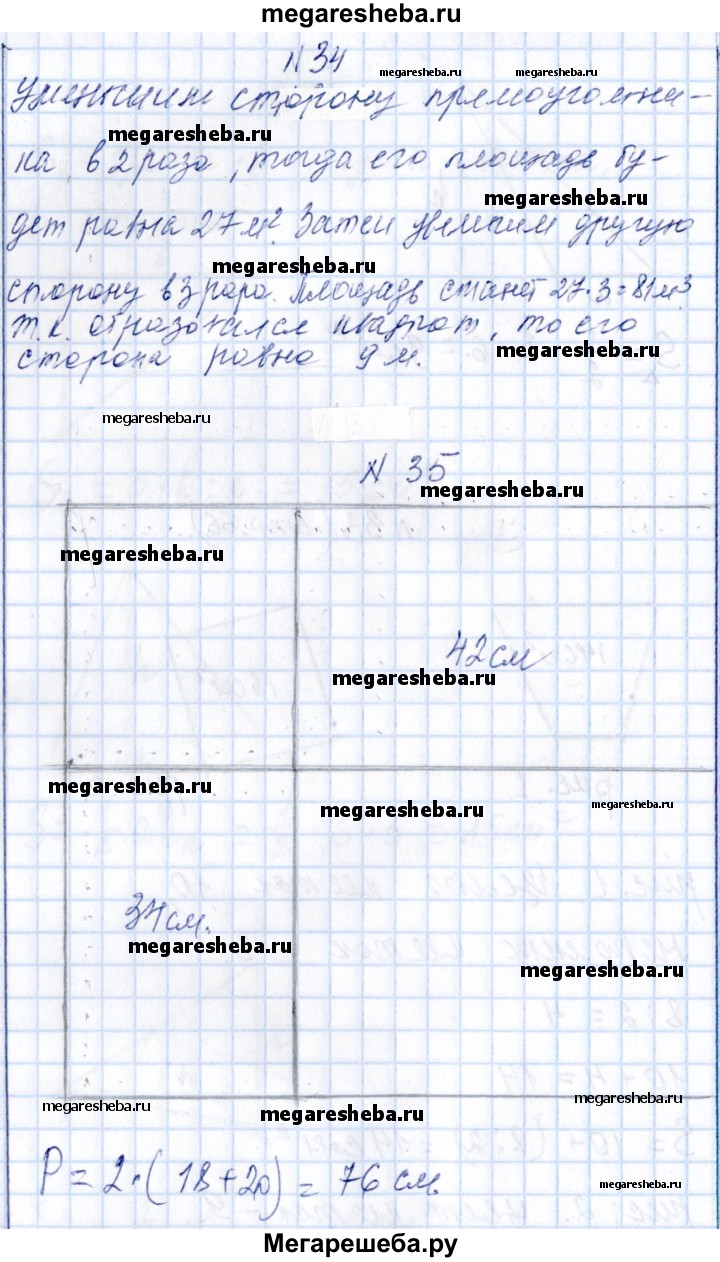 megaresheba.ru
N 34
megaresheba.ru megaresheba.ru
Уменьшим сторону прямоугольни-
megaresheba.ru
ка в 2 раза, тогда его площадь бу-
megaresheba.ru
дет равна 27 м². Затем увеличим другую
megaresheba.ru
сторону в 3 раза. Площадь станет 27·3=81м³
т.к. образовался квадрат, то его
megaresheba.ru
сторона равна 9 м.
megaresheba.ru
N 35
megaresheba.ru
megaresheba.ru
42 см
megaresheba.ru
megaresheba.ru
megaresheba.ru
megaresheba.ru
34 см.
megaresheba.ru
megaresheba.ru
megaresheba.ru
megaresheba.ru
megaresheba.ru
P = 2·(18+20) = 76 см.
megaresheba.ru
Мегарешеба.ру